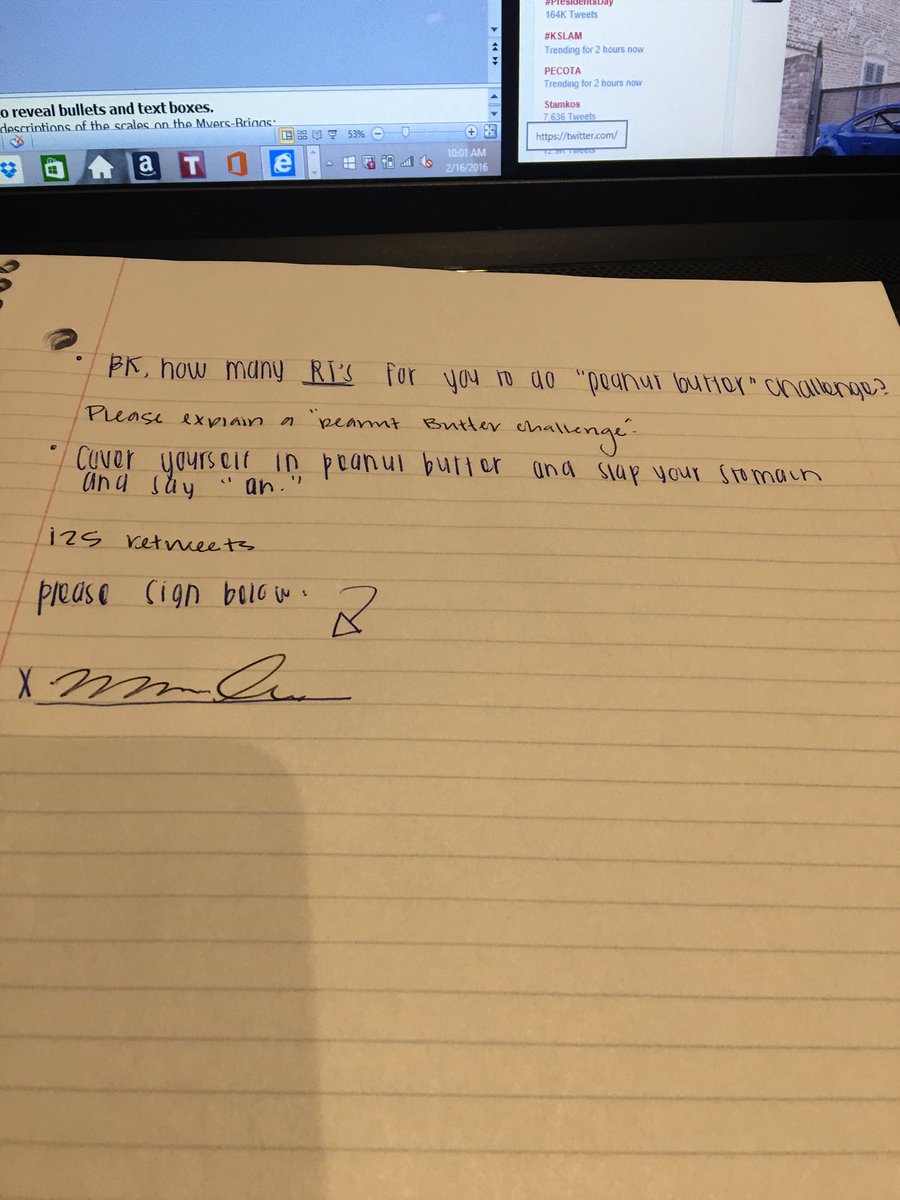 #PresidentsDay
164K Tweets
#KSLAM
Trending for 2 hours now
PECOTA
Trending for 2 hours now
Stamkos
7,636 Tweets
https://twitter.com/
12.9K Tweets
o reveal bullets and text boxes.
descriptions of the scales on the Myers-Briggs:
53%
a
T
e
10:01 AM
2/16/2016
• BK, how many RT's for you to do "peanut butter" challenge?
Please explain a "peanut Butter challenge".
• Cover yourself in peanut butter and slap your stomach
and say "ah."
125 retweets
please sign below.
X